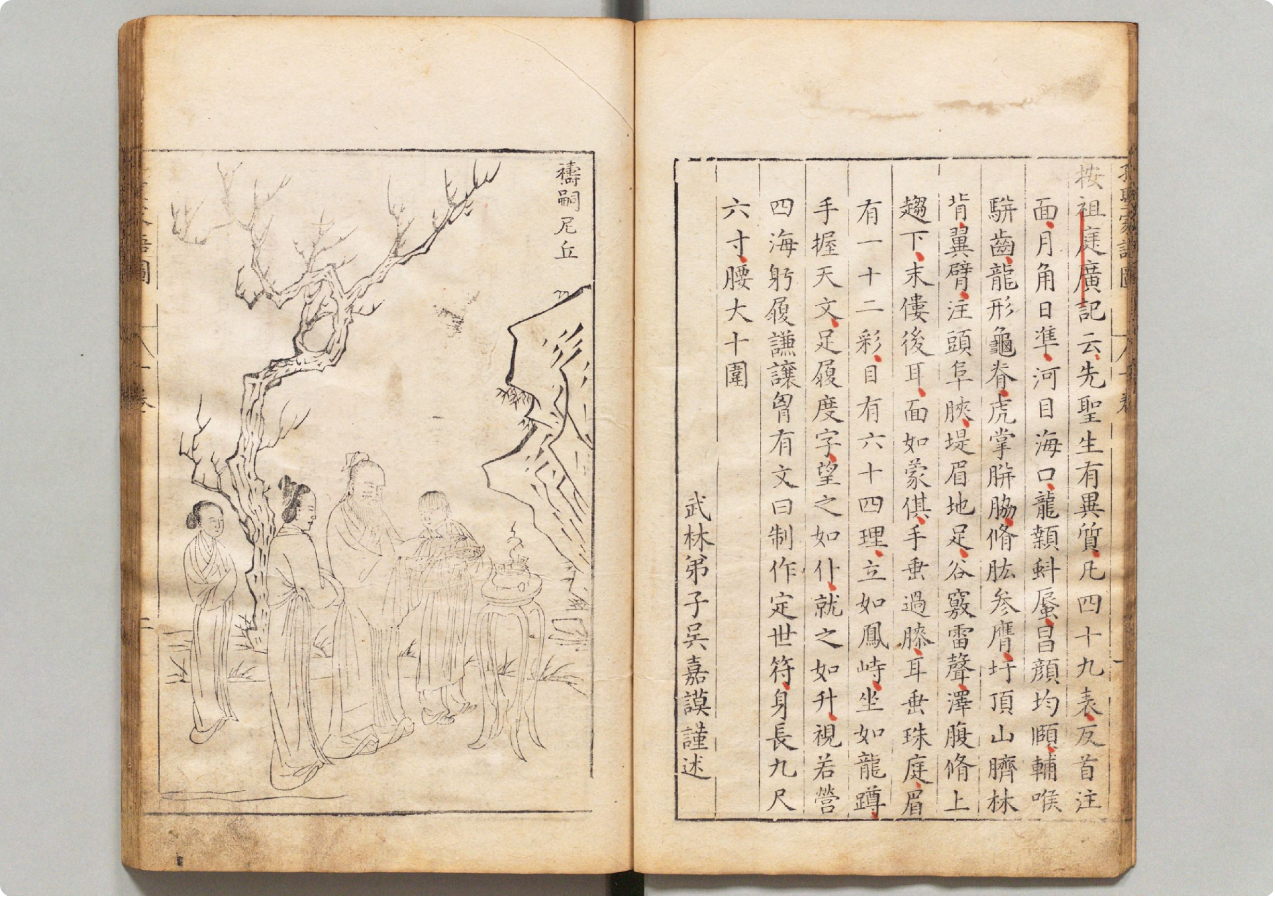 按祖庭廣記云先聖生有異質凡四十九表反首注
面月角日準河目海口龍顙斟𠪱昌顏均頤輔喉
駢齒龍形龜脊虎掌骿脇脩肱參膺圩頂山臍林
背翼臂注頭阜𦚾堤眉地足谷竅雷聲澤腹脩上
趨下末僂後耳面如蒙倛手垂過膝耳垂珠庭眉
有一十二彩目有六十四理立如鳳峙坐如龍蹲
手握天文足履度字望之如仆就之如升視若營
四海躬履謙讓胷有文曰制作定世符身長九尺
六寸腰大十圍
武林弟子吳嘉謨謹述
禱嗣尼丘